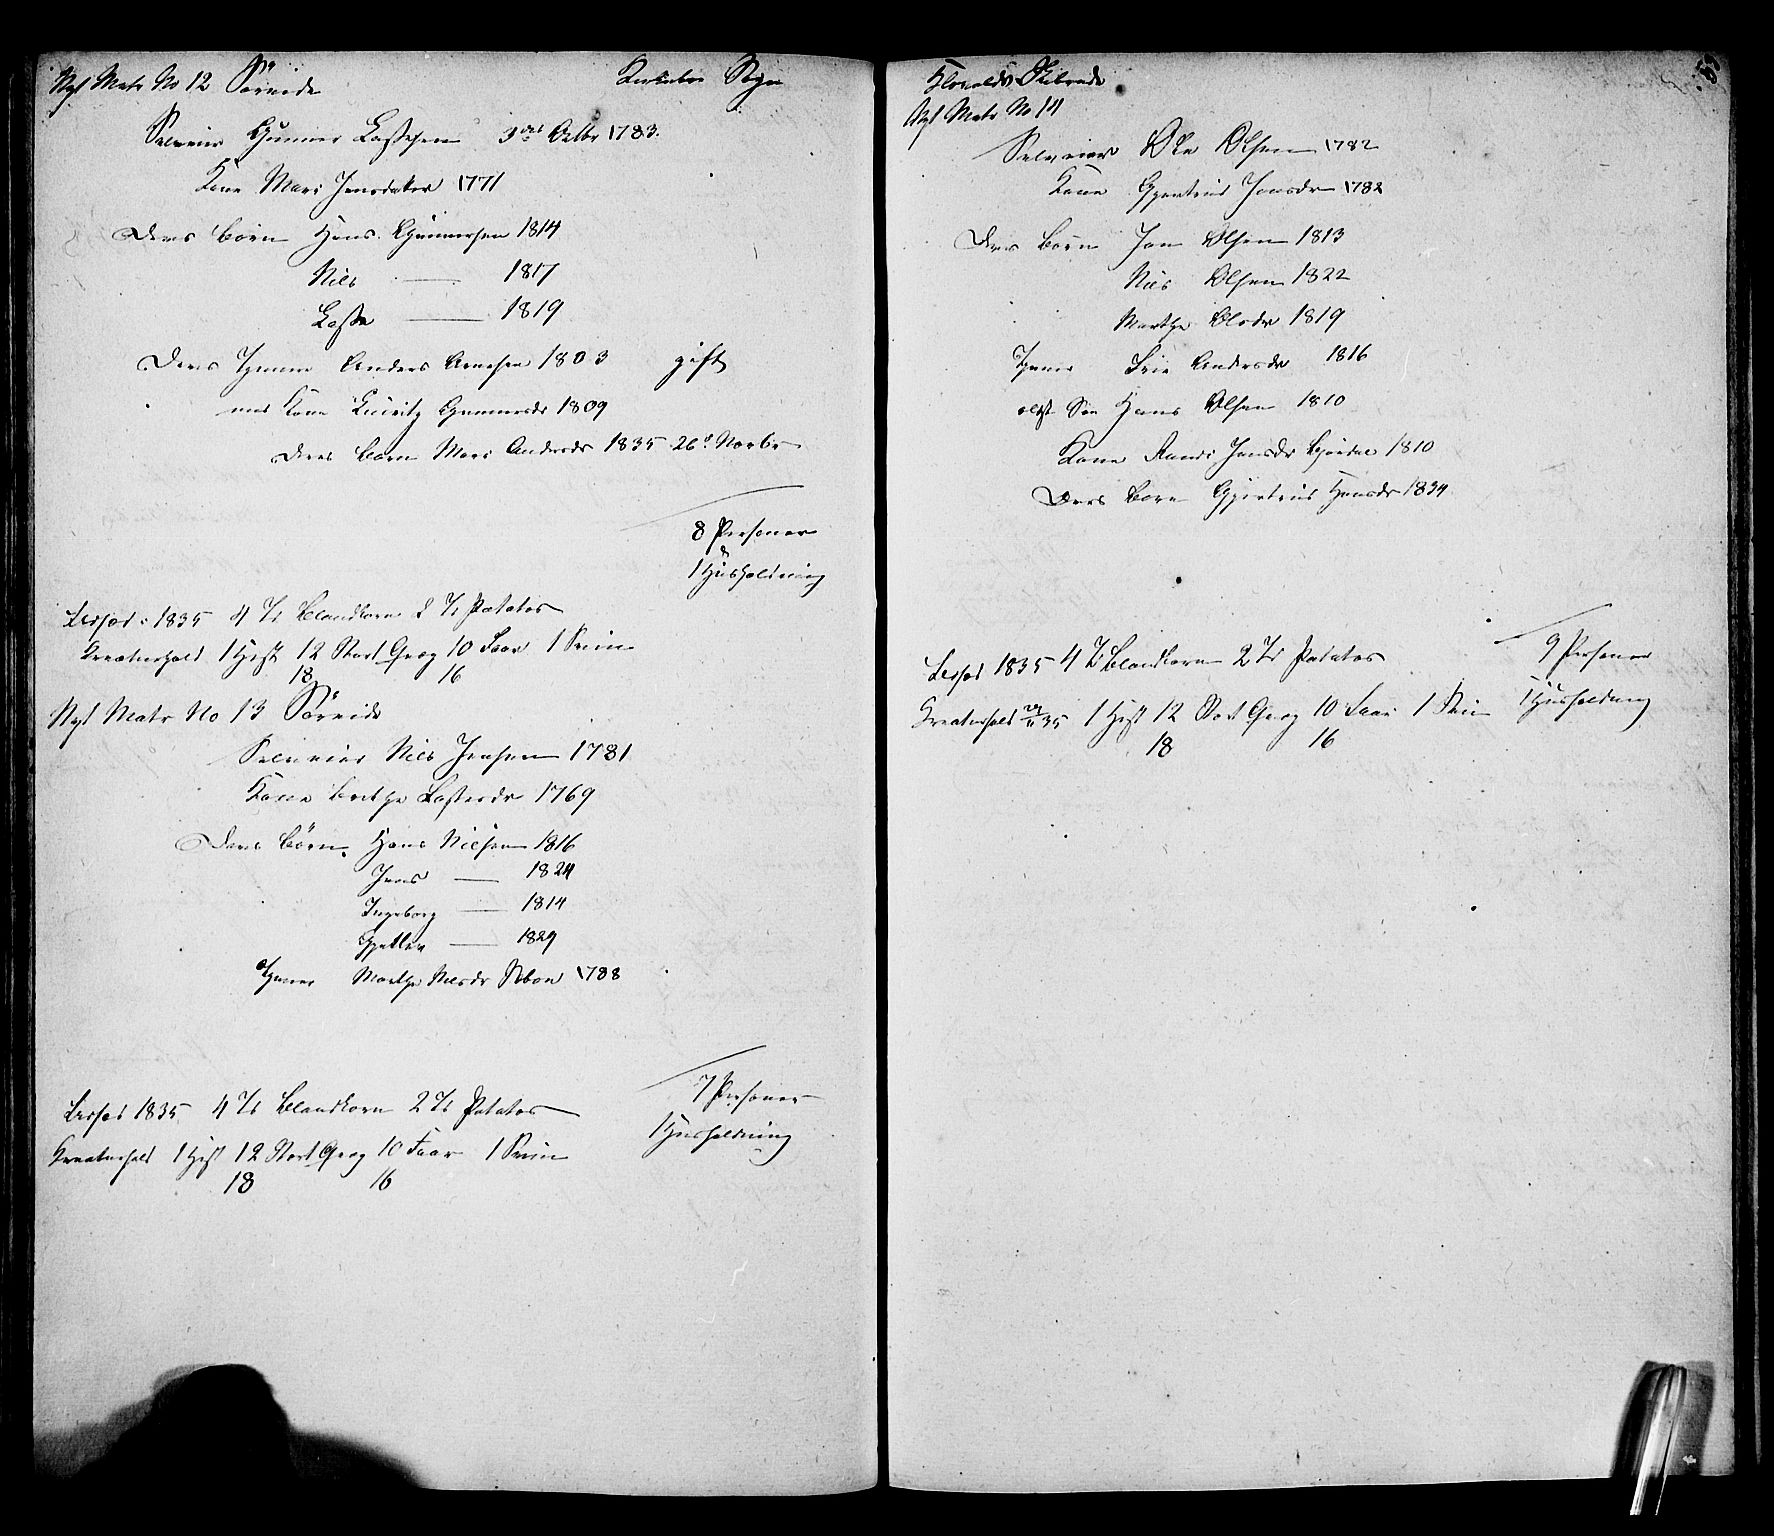 Nyt Matr No 12 Sörvide
Sogn
Selveier Gunner Lassesen 3die Octbr 1783.
Kone Mari Jensdatter 1771
Deres Börn Hans Gunnersen 1814
Nils — 1817
Lasse — 1819
Deres Tjener Anders Arnesen 1803 gift
med Kone Gunnersdr 1809
Deres Barn Mari Andersdr 1835 26d Novbr
8 Personer
&
1 Husholdning
Udsæd i 1835 4 Tr Blandkorn 2 Tr Potatos
Kreaturhold 1 Hest 12 Stort Qvæg 10 Faar 1 Sviin
18 16
Nyt Matr No 13 Sörvide
Selveier Nils Jensen 1781
Kone Brithe Lassesdr 1769
Deres Börn Hans Nilsen 1816
Jens — 1824
Ingeborg — 1814
— 1829
Tjener Marthe Nilsdr 1788
7 Personer
1 Husholdning
Udsæd 1835 4 Tr Blandkorn 2 Tr Potatos
Kreaturhold 1 Hest 12 Stort Qvæg 10 Faar 1 Sviin
18 16
Skibrede
Nyt Matr No 14
Selveier Ole Olsen 1782
Kone Gjertrud Jonsdr 1782
Deres Börn Jon Olsen 1813
Nils Olsen 1822
Marthe Olsdr 1819
Tjener Andersdr 1816
ældst Sön Hans Olsen 1810
Kone Randi Jensdr 1810
Deres Barn Gjertrud Hansdr 1834
9 Personer
1 Husholdning
Udsæd 1835 4 Tr Blandkorn 2 Tr Potatos
Kreaturhold 35 1 Hest 12 Stort Qvæg 10 Faar 1 Sviin
18 16